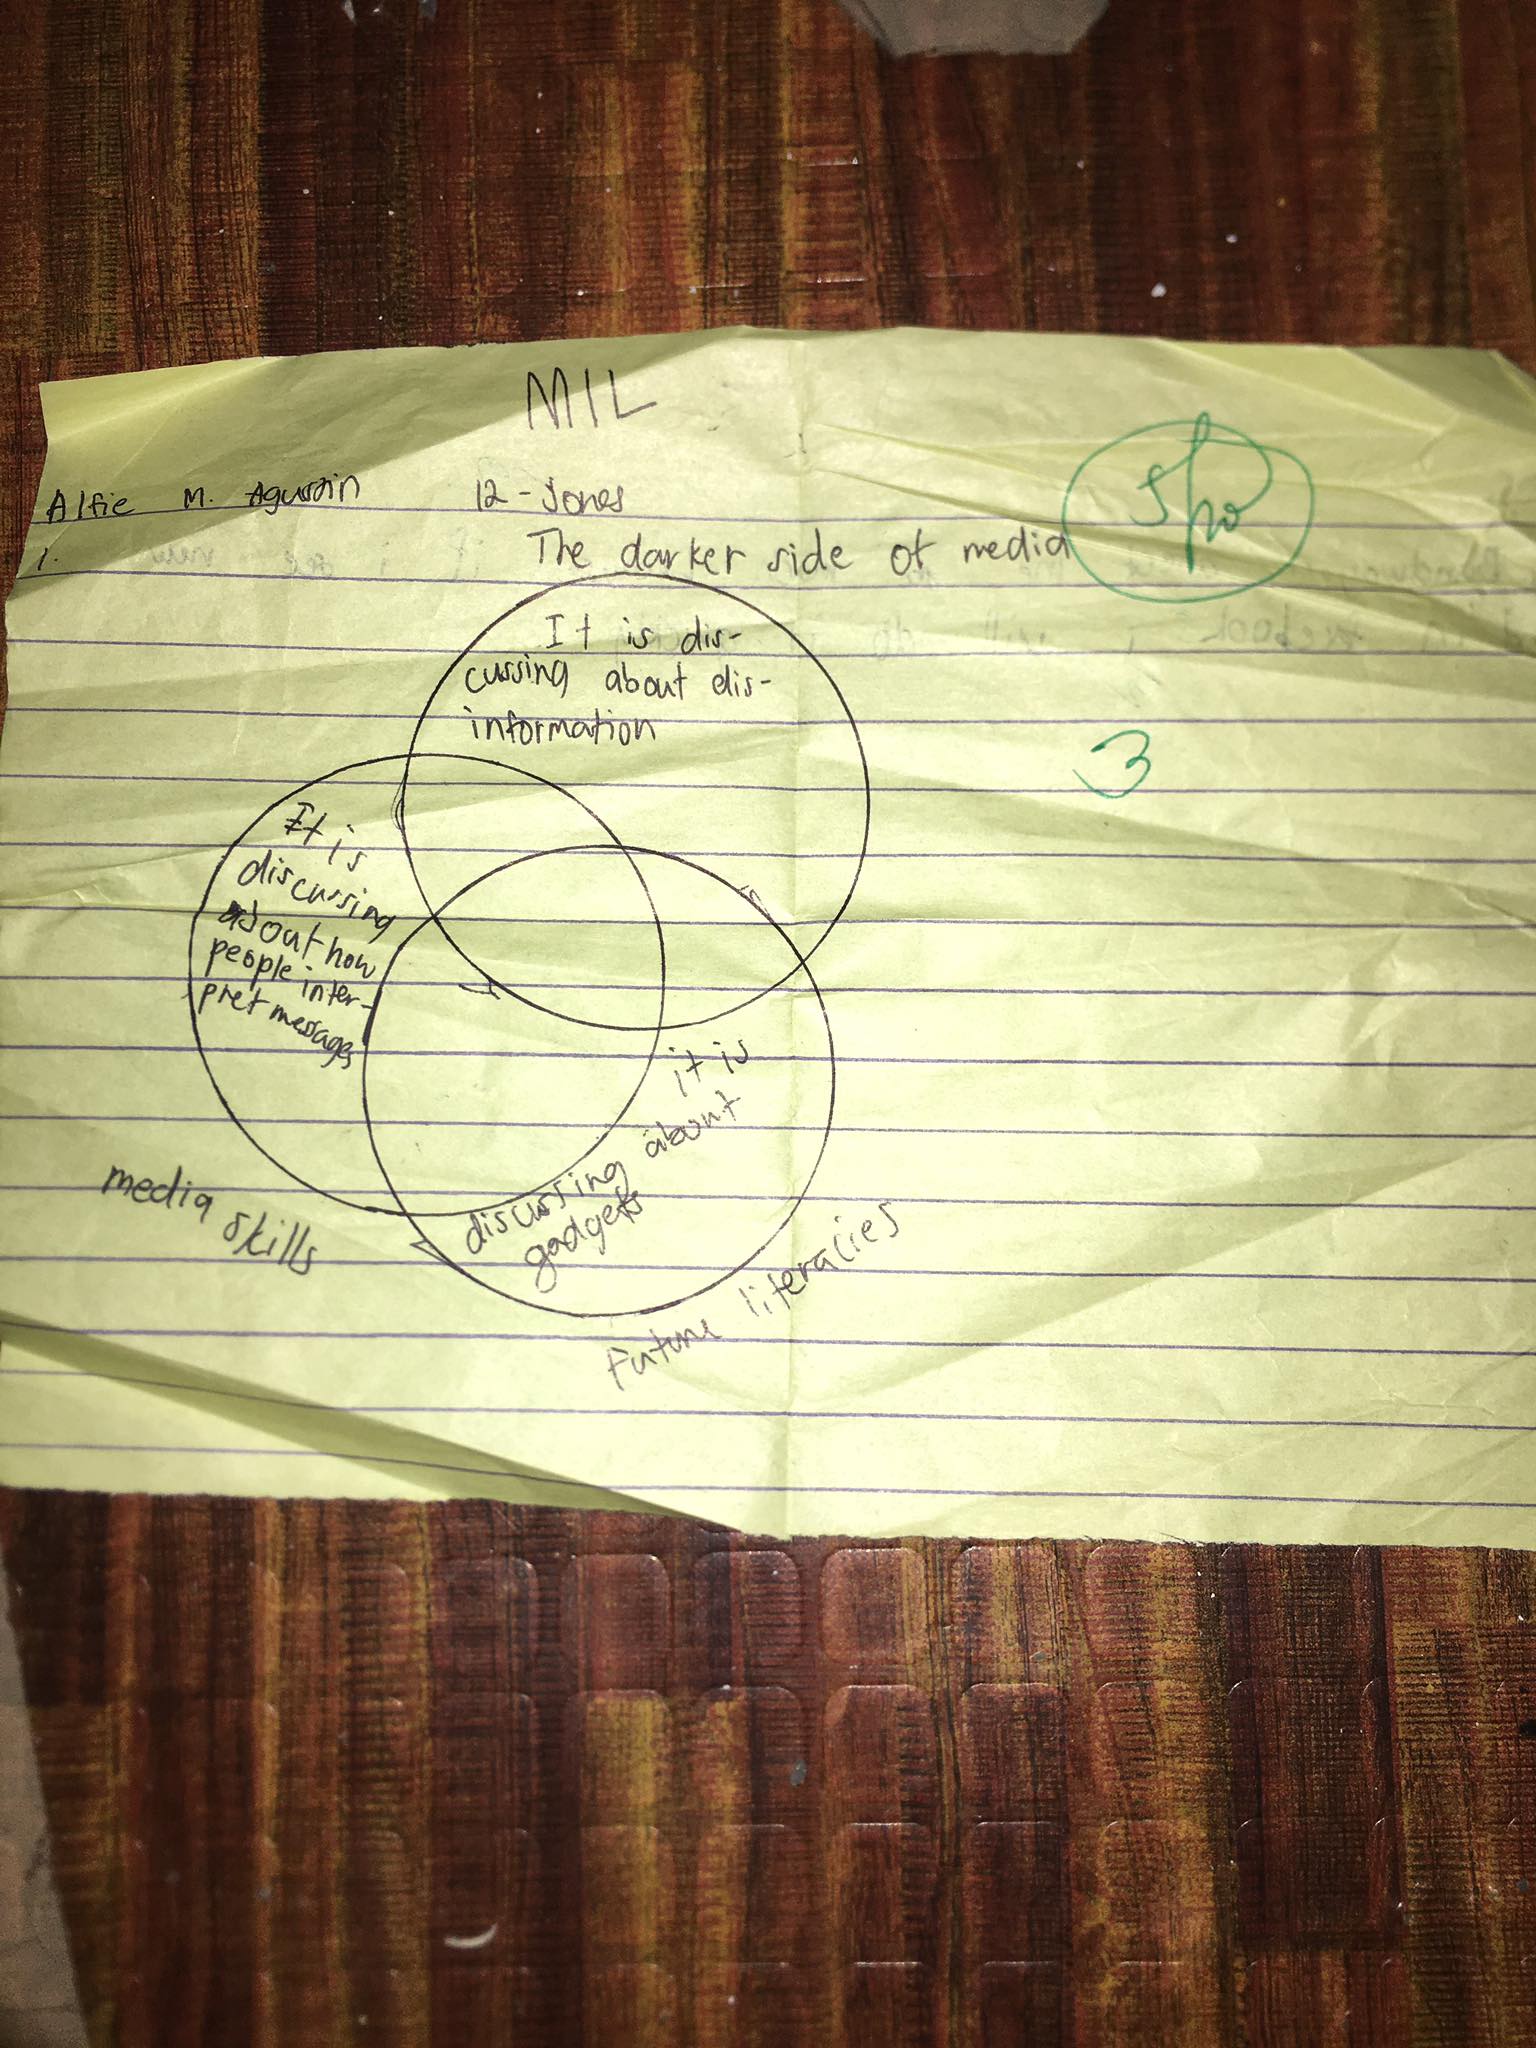 MIL
Alfie M. 12 - Jones
1. The darker side of media
It is dis-
cussing about dis-
information
3
It is
discussing
about how
people inter-
pret messages
it is
discussing about
gadgets
media skills
Future literacies